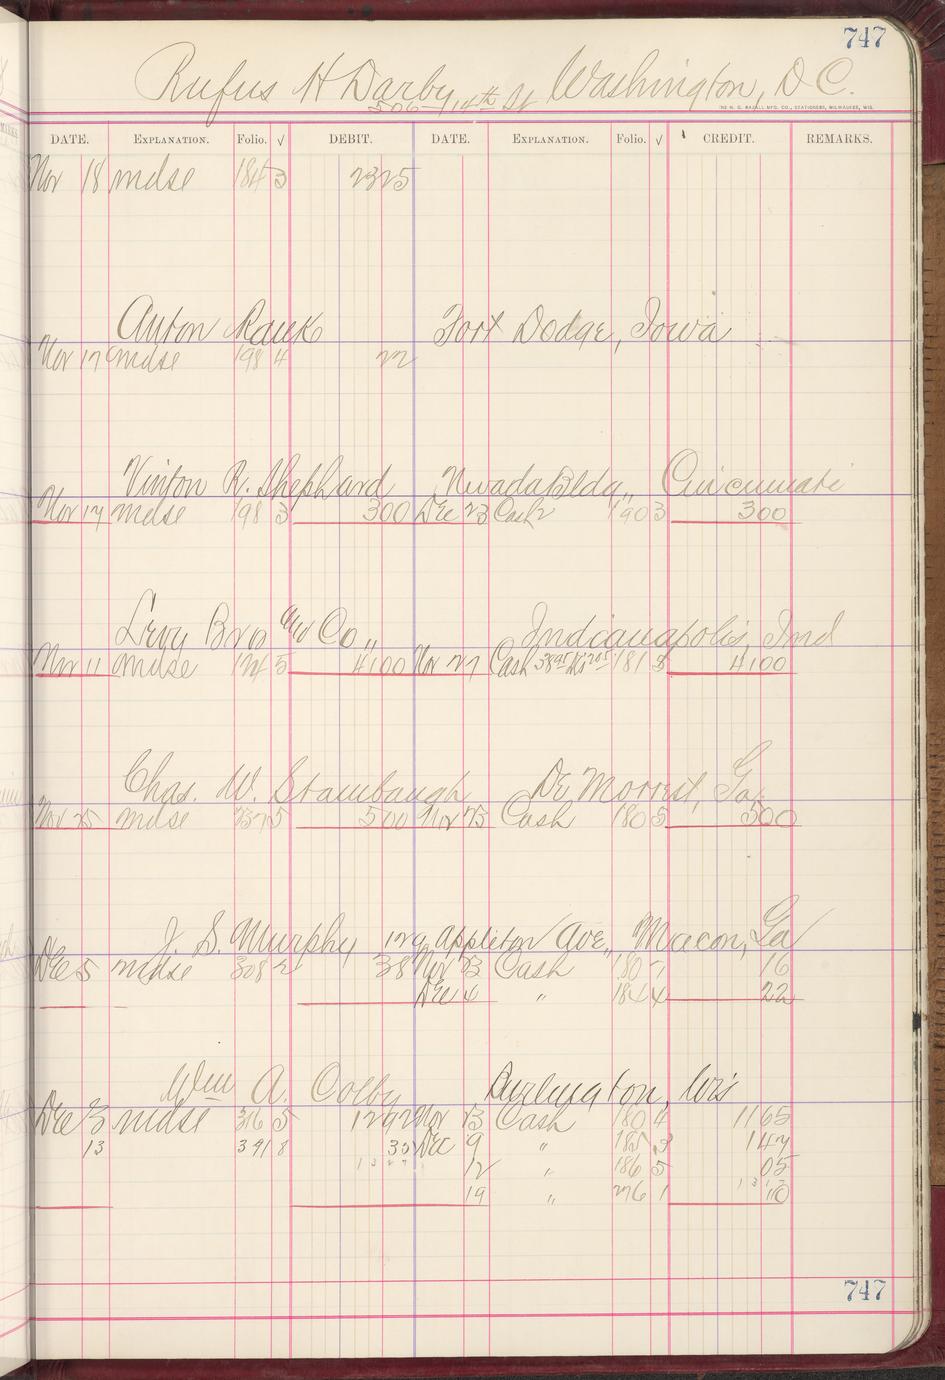 747
Rufus H Darby, Washington, D.C.
506 - 14th St
THE H. G. RAZALL MFG. CO., STATIONERS, MILWAUKEE, WIS.
DATE. EXPLANATION. Folio. √ DEBIT. DATE. EXPLANATION. Folio. √ CREDIT. REMARKS.
Nov 18 mdse 184 3 2325
Anton Fort Dodge, Iowa
Nov 17 mdse 198 4 22
Vinton R. Shephard Nevada Bldg,, Cincinnati
Nov 17 mdse 198 3 300 Dec 23 Cash 190 3 300
Levy Bro and Co,, Indianapolis, Ind
Nov 11 mdse 124 5 4100 Nov 27 Cash 38 95 205 181 3 4100
Chas. W. Stambaugh De Morrest, Ga.
Nov 25 mdse 237 5 500 Nov 23 Cash 180 5 500
J. S. Murphy 129 Appleton Ave,, Macon, Ga
Dec 5 mdse 308 2 38 Nov 23 Cash 180 7 16
Dec 4 " 184 4 22
Wm A. Colby Burlington, Wis
Dec 3 mdse 316 5 1292 Nov 13 Cash 180 4 1165
13 391 8 35 Dec 9 " 185 3 147
1327 12 " 186 5 05
19 " 276 1 10
747